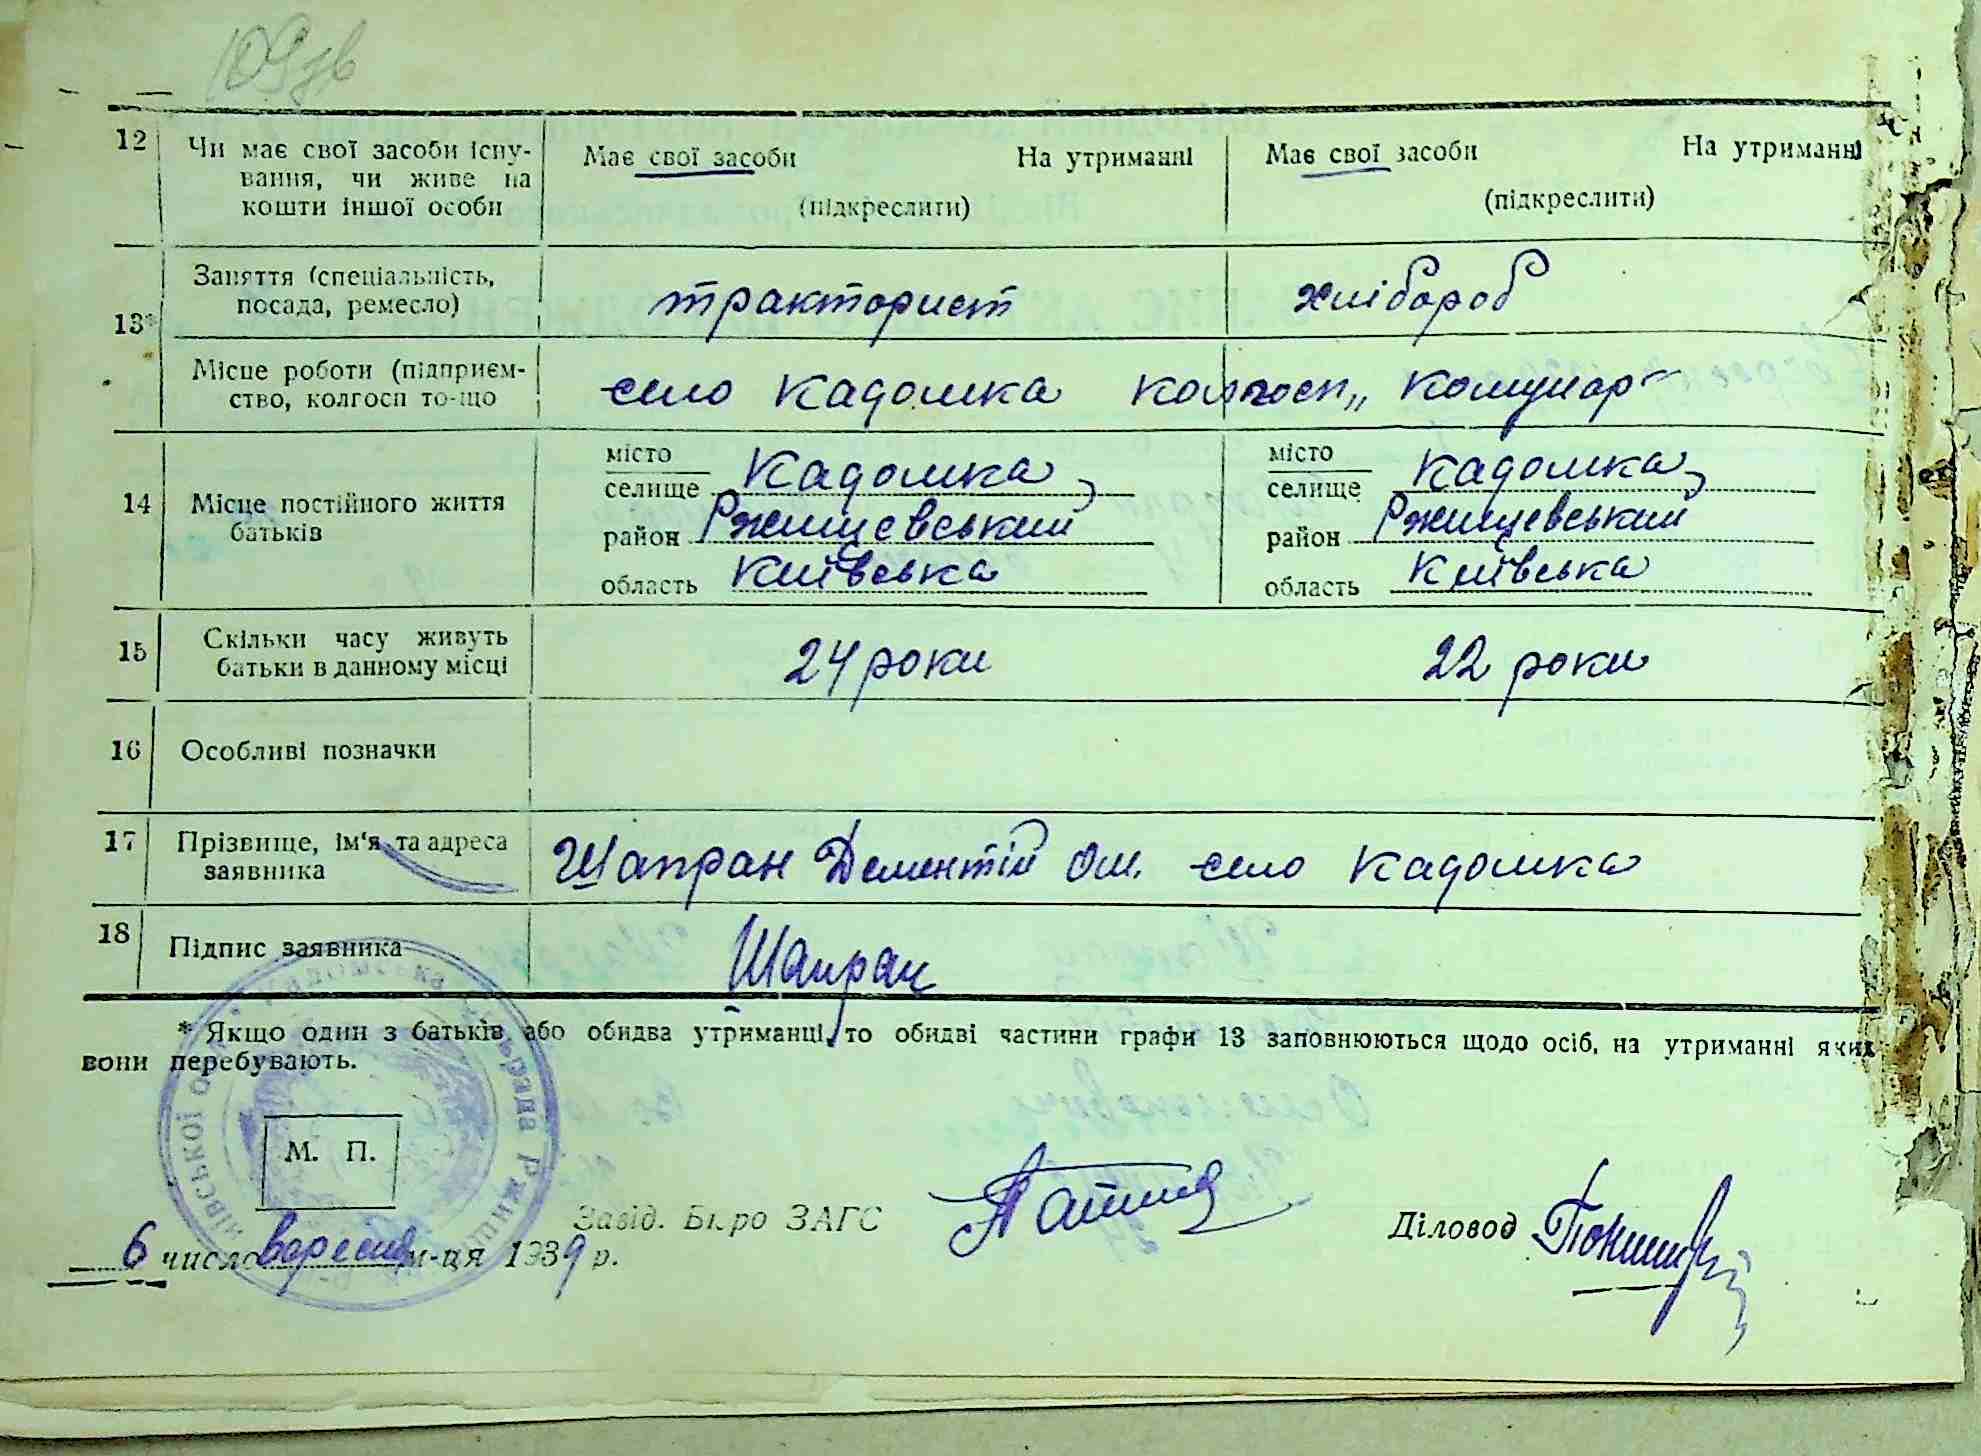 109зв
12 Чи має свої засоби існу- Має свої засоби На утриманні Має свої засоби На утриманні
вання, чи живе на
кошти іншої особи (підкреслити) (підкреслити)
13* Заняття (спеціальність, тракторист хлібороб
посада, ремесло)
Місце роботи (підприєм- село Кадомка колгосп „Комунар"
ство, колгосп то-що
14 Місце постійного життя місто Кадомка, місто Кадомка,
батьків селище селище
район Ржищевський район Ржищевський
область Київська область Київська
15 Скільки часу живуть 24 роки 22 роки
батьки в данному місці
16 Особливі позначки
17 Прізвище, ім'я та адреса Шапран Дементій Ом. село Кадомка
заявника
18 Підпис заявника Шапран
* Якщо один з батьків або обидва утриманці, то обидві частини графи 13 заповнюються щодо осіб, на утриманні яких
вони перебувають.
М. П.
Завід. Бюро ЗАГС Діловод
6 число вересня м-ця 1939 р.